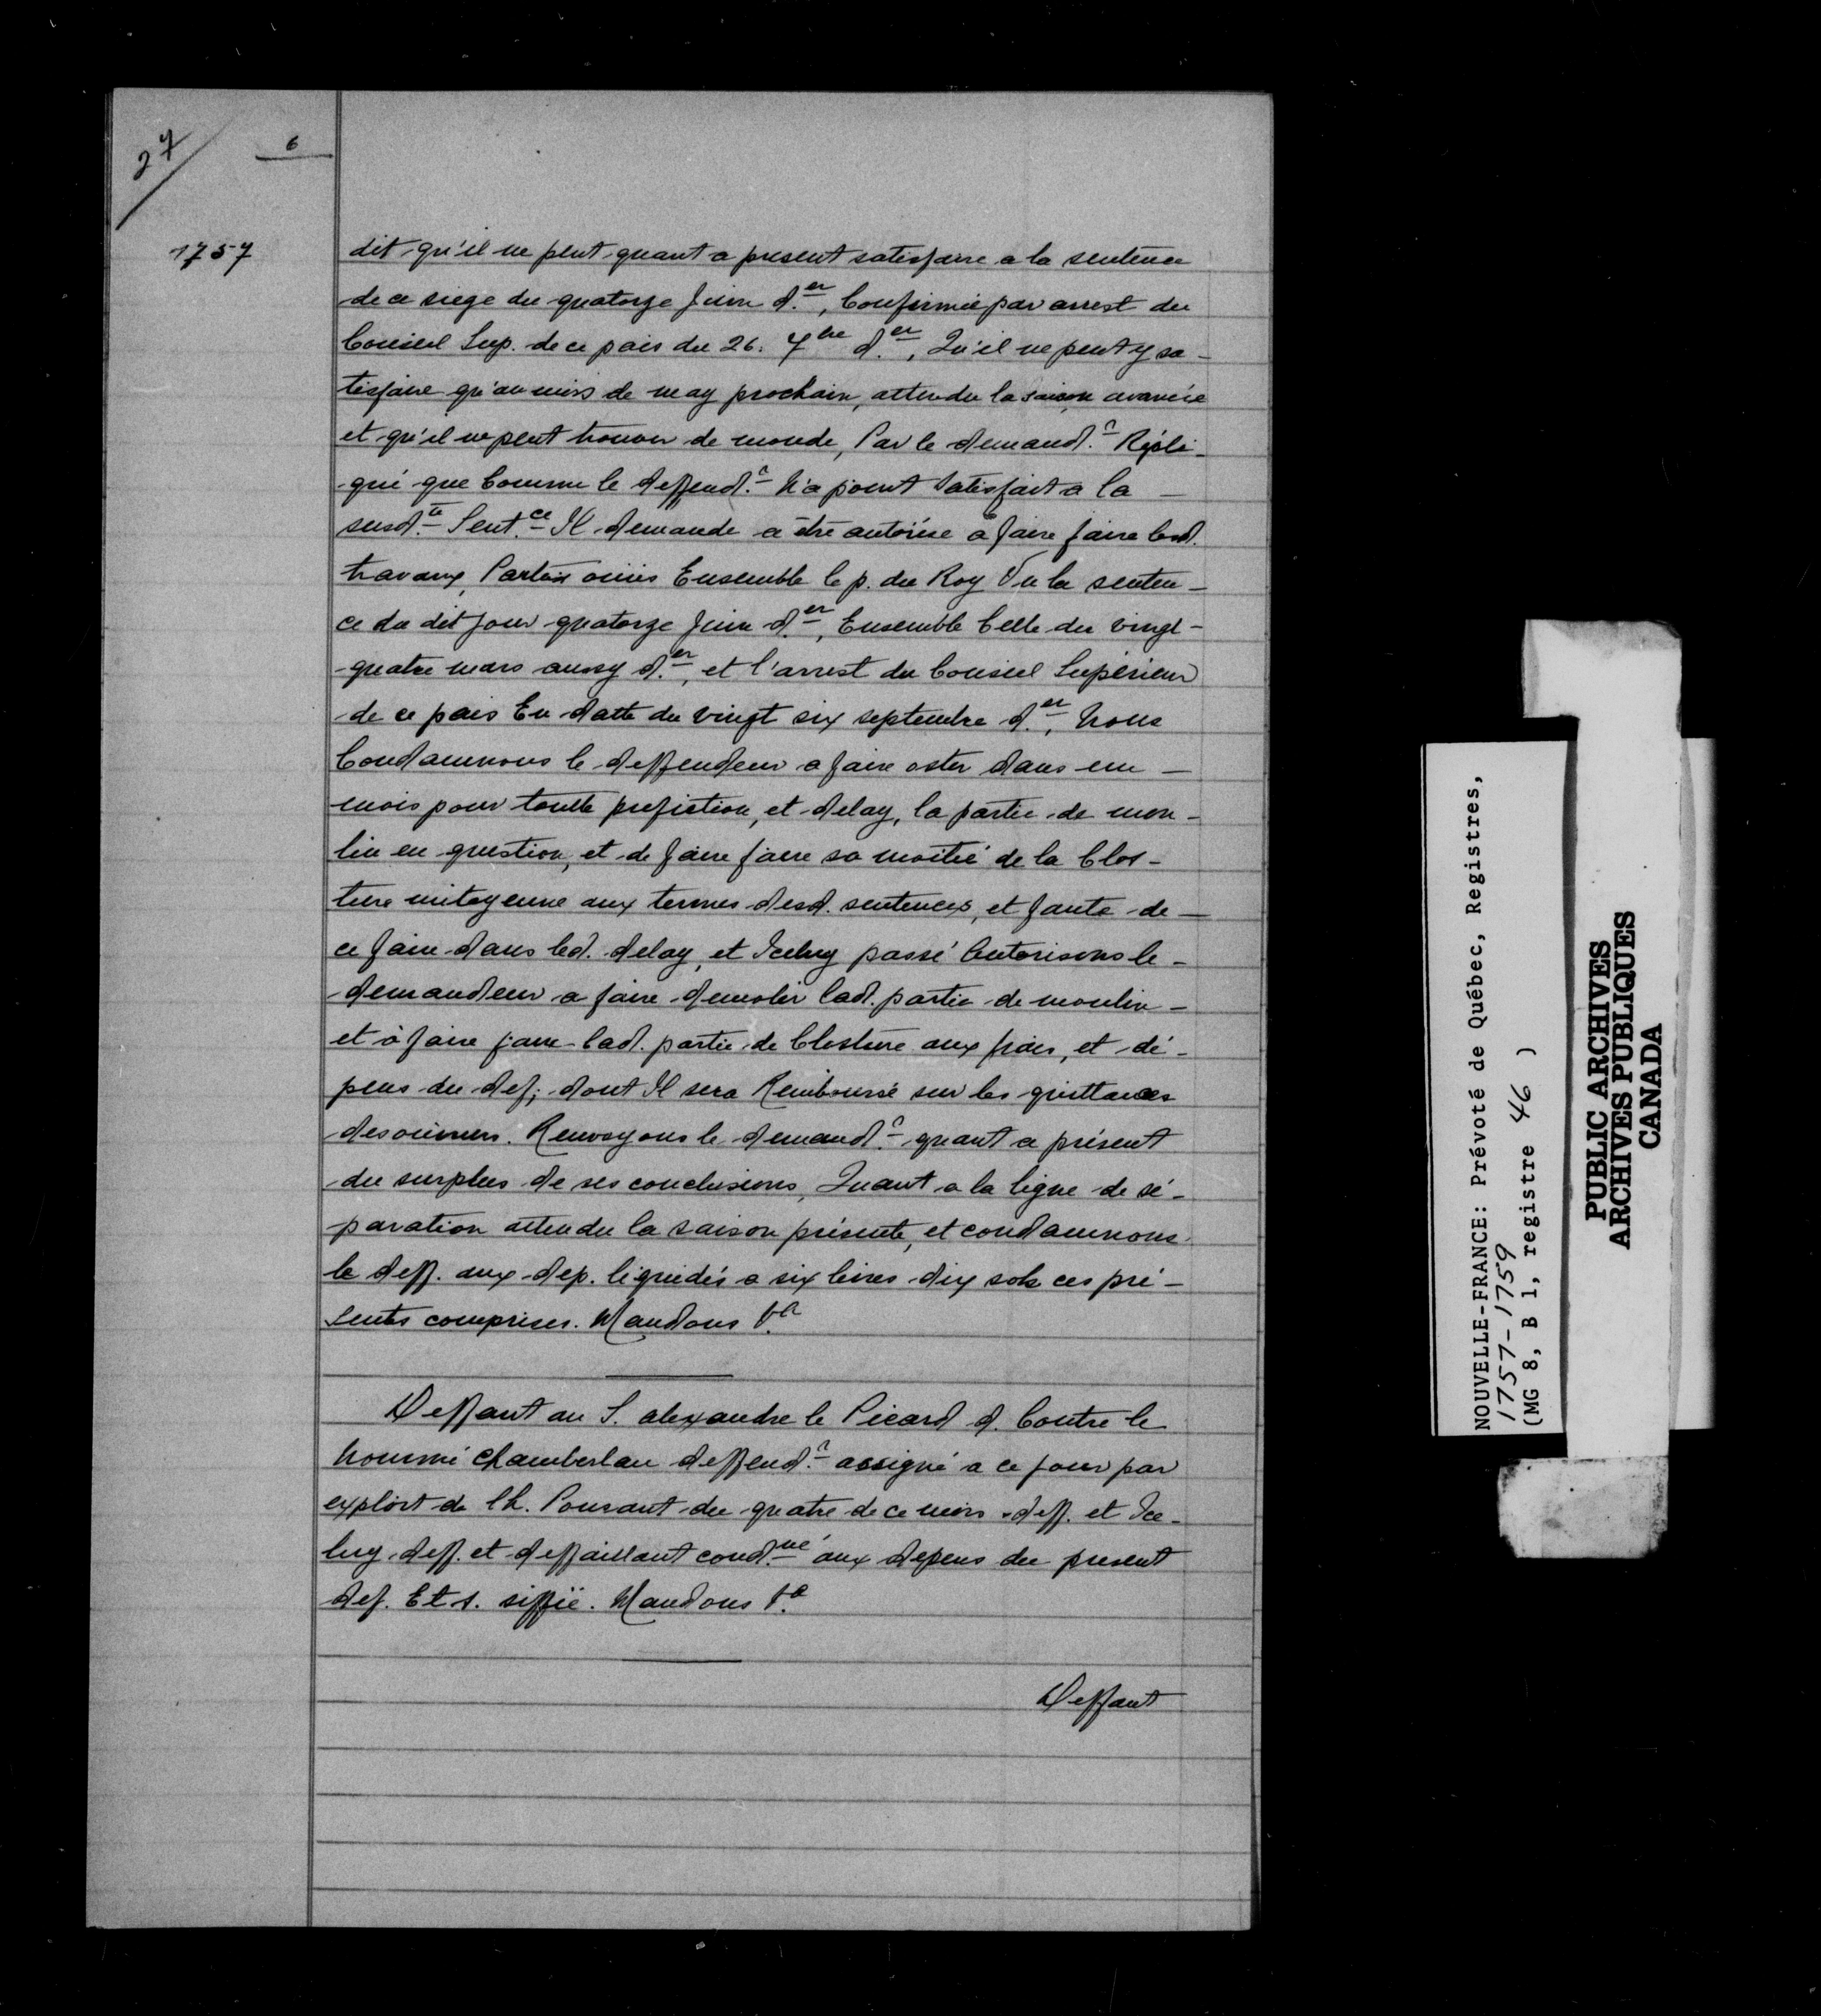 27
6
1757
dit qu'il ne peut quant a present satisfaire a la sentence
de ce siege du quatorze Juin d.er, Confirmée par arrest du
Conseil Sup. de ce pais du 26. 7bre d.er, Qu'il ne peut y sa-
tisfaire qu'au mois de may prochain, attendu la saison avancée
et qu'il ne peut trouver de monde, Par le demand.r Répli-
qué que Comme le deffend.r N'a point Satisfait a la -
susd.te Sent.ce Il demande a être autorise a faire faire lesd.
travaux, Parties ouies Ensemble le p. du Roy Vu la senten-
ce du dit jour quatorze Juin d.er, Ensemble Celle du vingt-
quatre mars aussy d.er, et l'arrest du Conseil Supérieur
de ce pais En datte du vingt six septembre d.er, Nous
Condamnons le deffendeur a faire oster dans un -
mois pour toutte prefiction, et delay, la partie de mou-
lin en question, et de faire faire sa moitié de la Clos-
ture mitoyenne aux termes desd. sentences, et faute de -
ce faire dans led. delay, et Iceluy passé Autorisons le -
demandeur a faire demolir lad. partie de moulin -
et à faire faire lad. partie de Closture aux frais, et dé-
pens du def; dont Il sera Remboursé sur les quittances
des ouvriers. Renvoyons le demand.r quant a présent
du surplus de ses conclusions, Quant a la ligne de sé-
paration attendu la saison présente, et condamnons
le deff. aux dep. liquidés a six livres dix sols ces pré-
sentes comprises. Mandons &.a
Deffaut au S. alexandre le Picard d. Contre le
Nommé Chamberlan deffend.r assigné a ce jour par
exploit de l'h. Poussant du quatre de ce mois deff. et Ice-
luy deff. et deffaillant cond.né aux depens du present
def. Et s. siffié. Mandons &.a
Deffaut
NOUVELLE-FRANCE: Prévoté de Québec, Registres,
1757-1759
(MG 8, B 1, registre 46 )
PUBLIC ARCHIVES
ARCHIVES PUBLIQUES
CANADA